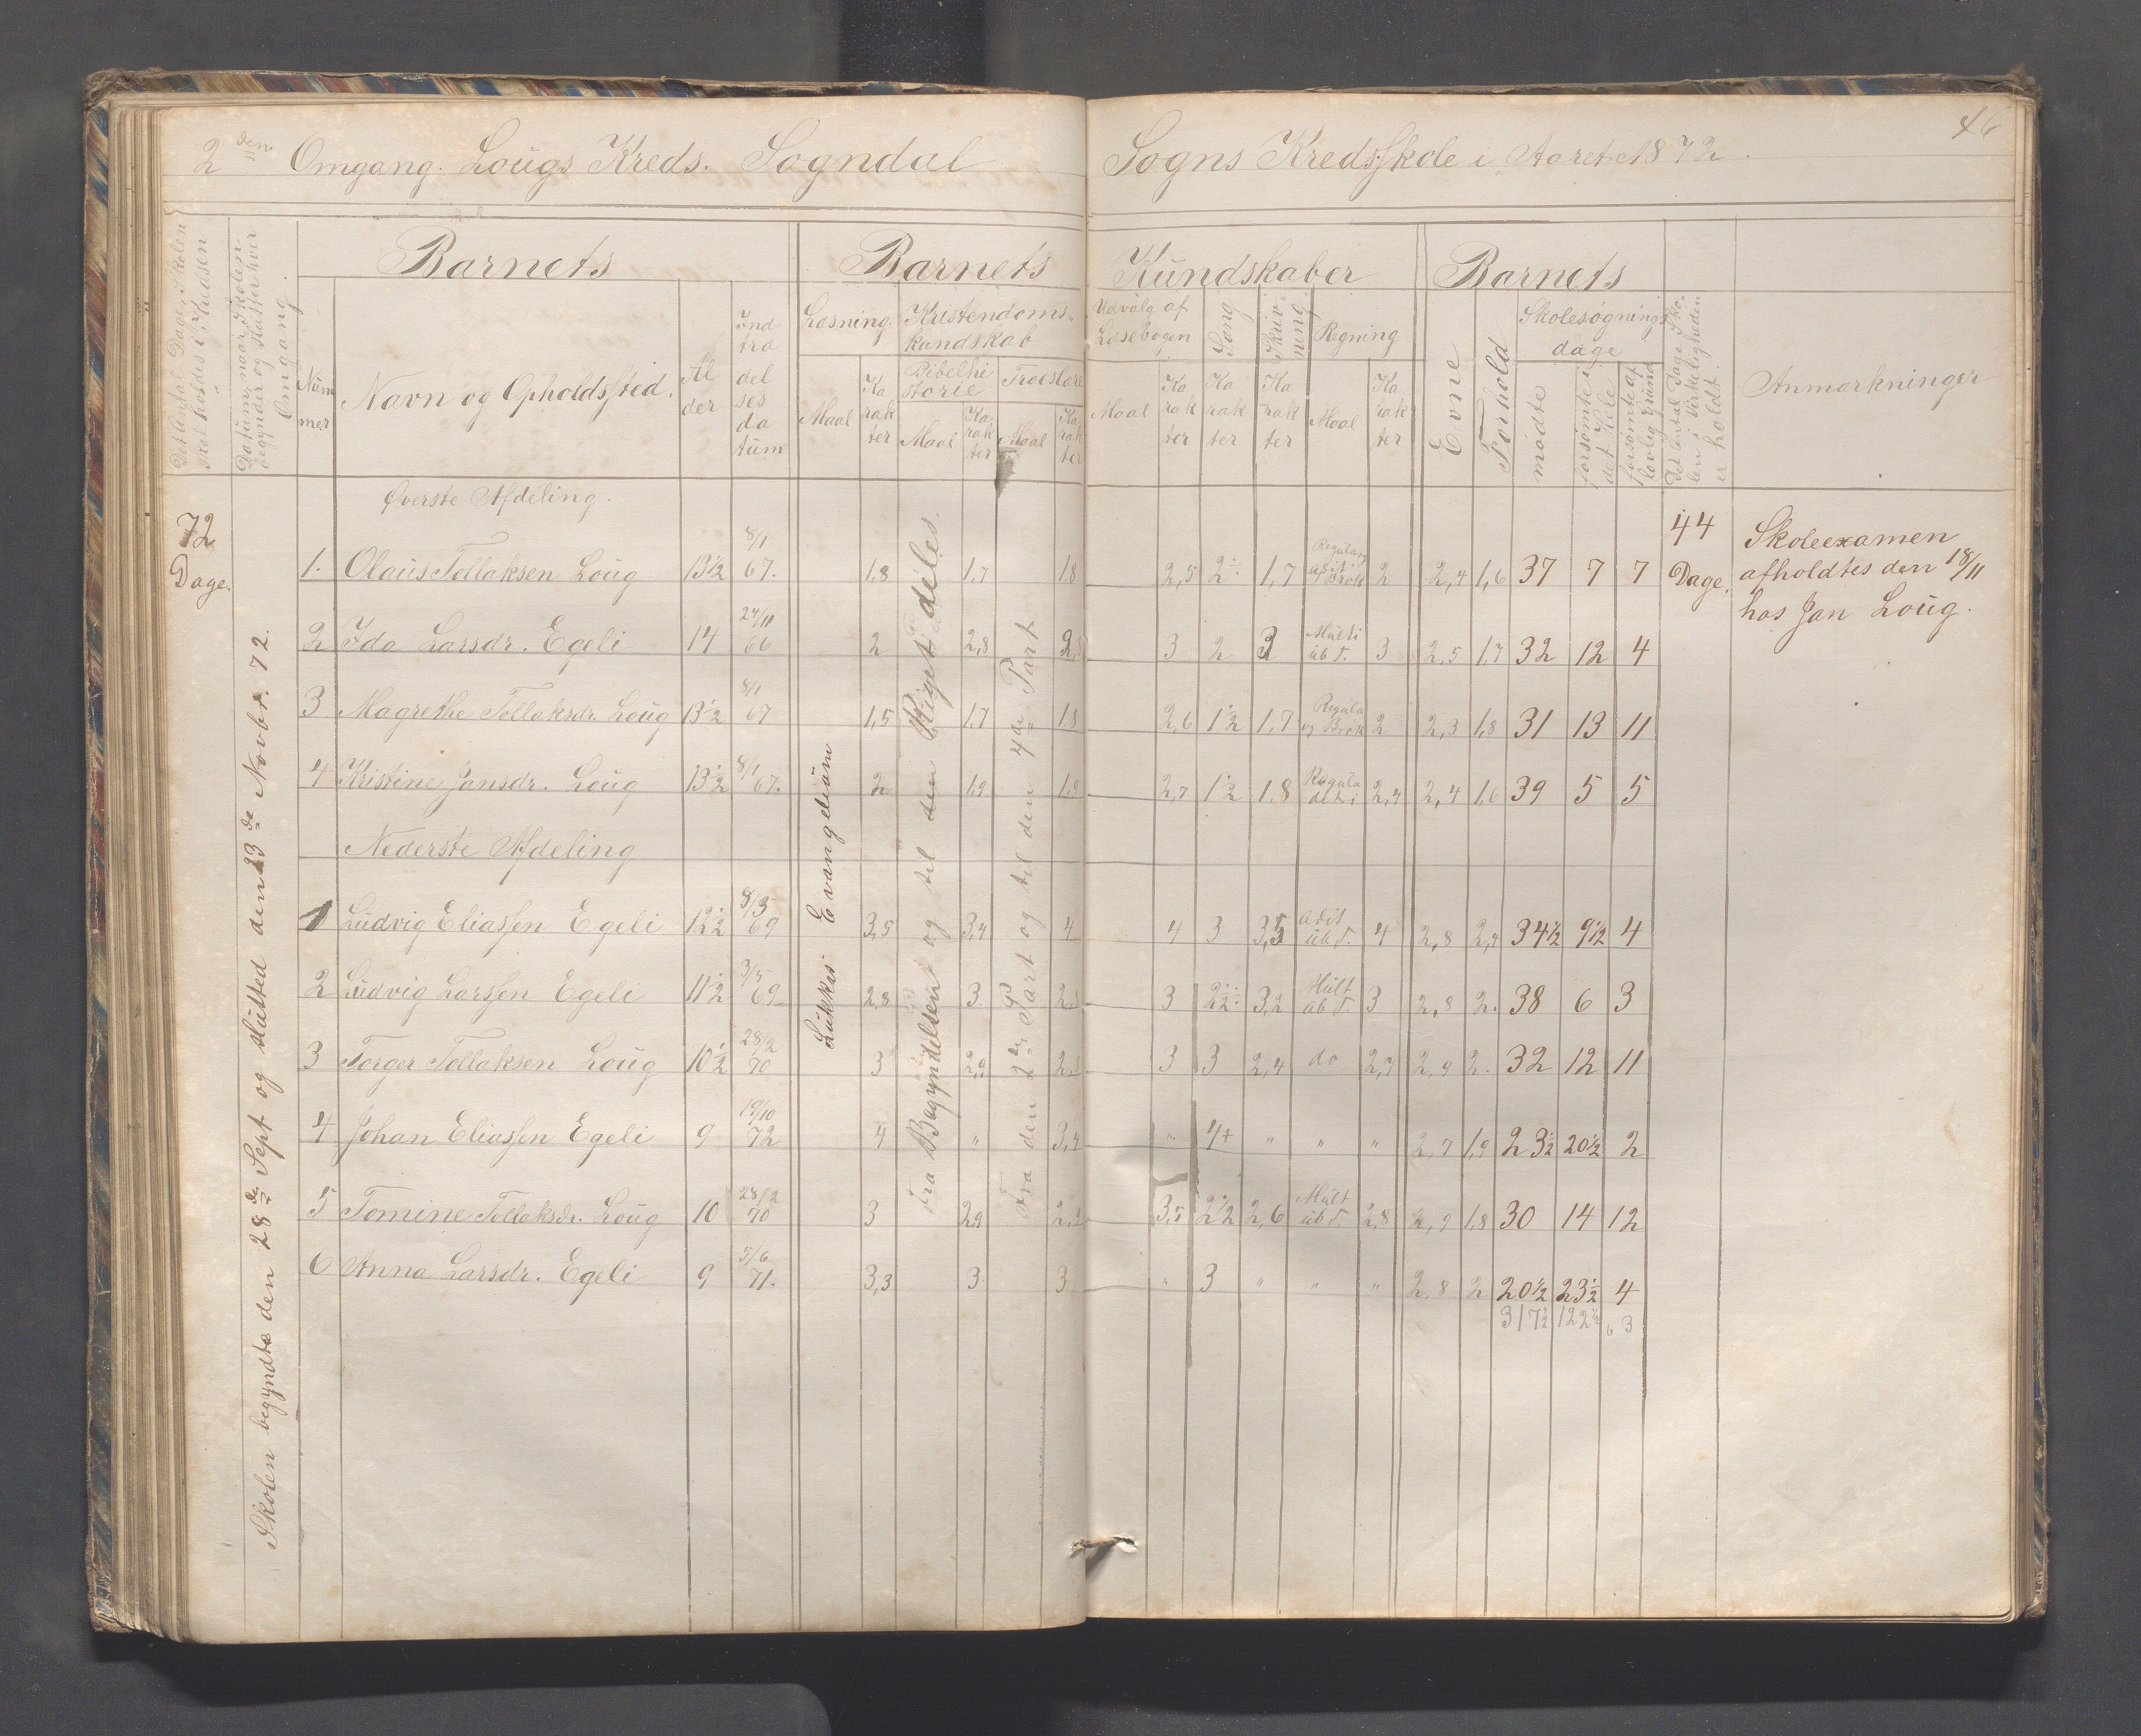 46
2den Omgang. Lougs Kreds. Sogndal Sogns KredsSkole i Aaret 1872.
Det Antal Dage, Skolen skal holdes i Kredsen
Datum, naar Skolen begynder og slutter hver Omgang.
Barnets
Barnets Kundskaber
Barnets
Num mer
Navn og Opholdssted.
Al der
Ind træ del ses da tum
Læsning.
Kristendoms- kundskab
Bibelhi storie
Troeslære
Maal
Ka rak ter
Maal
Ka rak ter
Maal
Ka rak ter
Udvalg af Læsebogen
Sang
Skriv- ning
Regning
Maal
Ka rak ter
Ka rak ter
Ka rak ter
Maal
Ka rak ter
Evne
Forhold
Skolesøgnings dage
mødte
forsømte i det Hele
forsømte af lovlig Grund
Det Antal Dage Sko- len i Virkeligheden er holdt.
Anmærkninger
Øverste Afdeling.
72 Dage.
Skolen begyndte den 28de Sept og slutted den 23de Novbr. 72.
Lukkas Evangelium
Fra Begyndelsen og til den Riget deles.
Fra den 2de Part og til den 4de Part
1. Olaus Tollaksen Loug 13½ 8/1 67. 1,8 1,7 1.8 2,5 2÷ 1,7 Regula og Brøk 2 2,4 1,6 37 7 7
44 Dage.
Skoleexamen
afholdtes den 18/11
hos Jan Loug.
2 Ida Larsdr. Egeli 14 24/11 66 2 2,8 2,8 3 2 3 Multi ub T. 3 2,5 1,7 32 12 4
3 Magrethe Tollaksdr. Loug 13½ 8/1 67 1,5 1,7 1.8 2,6 1½ 1,7 Regula og Brøk 2 2,3 1,8 31 13 11
4 Kristine Jansdr. Loug 13½ 8/1 67. 2 1,9 1,9 2,7 1½ 1.8 Regula deti 2,4 2,4 1,6 39 5 5
Nederste Afdeling
1 Ludvig Eliassen Egeli 12½ 8/3 69 3,5 3,4 4 4 3 3,5 adit ub T. 4 2,8 2,4 34½ 9½ 4
2 Ludvig Larssen Egeli 11½ 3/5 69 2,8 3. 3 2½÷ 3,2 Mult ub T. 3 2,8 2. 38 6 3
3 Torger Tollaksen Loug 10½ 28/2 70 3 2,9 3 3 2,4 do 2,7 2,9 2. 32 12 11
4 Johan Eliassen Egeli 9 19/10 72 4 " 3,4 " 4+ " " " 2,7 1,9 23½ 20½ 2
5 Tomine Tollaksdr. Loug 10 28/2 70 3 2,9 3,5 2½ 2,6 Mult ub T. 2,8 2,9 1,8 30 14 12
6 Anna Larsdr. Egeli 9 5/6 71. 3,3 3 3 " 3 " " " 2,8 2 20½ 23½ 4
317½ 122½ 63